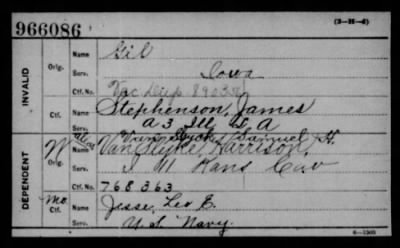 966086
(3—H—6)
INVALID
Orig.
Name Gil
Serv. Iowa
Ctf. No. Vac Dup. 8903
Ctf.
Name Stephenson, James
Serv. A 3 Ill. L. A
DEPENDENT
W Orig.
Name Van Slyke, Samuel H.
Van Slyke, Harrison,
Serv. M Kans Cav
Ctf. No. 768363
Mo. Ctf.
Name Jesse, Leo E.
Serv. U.S. Navy.